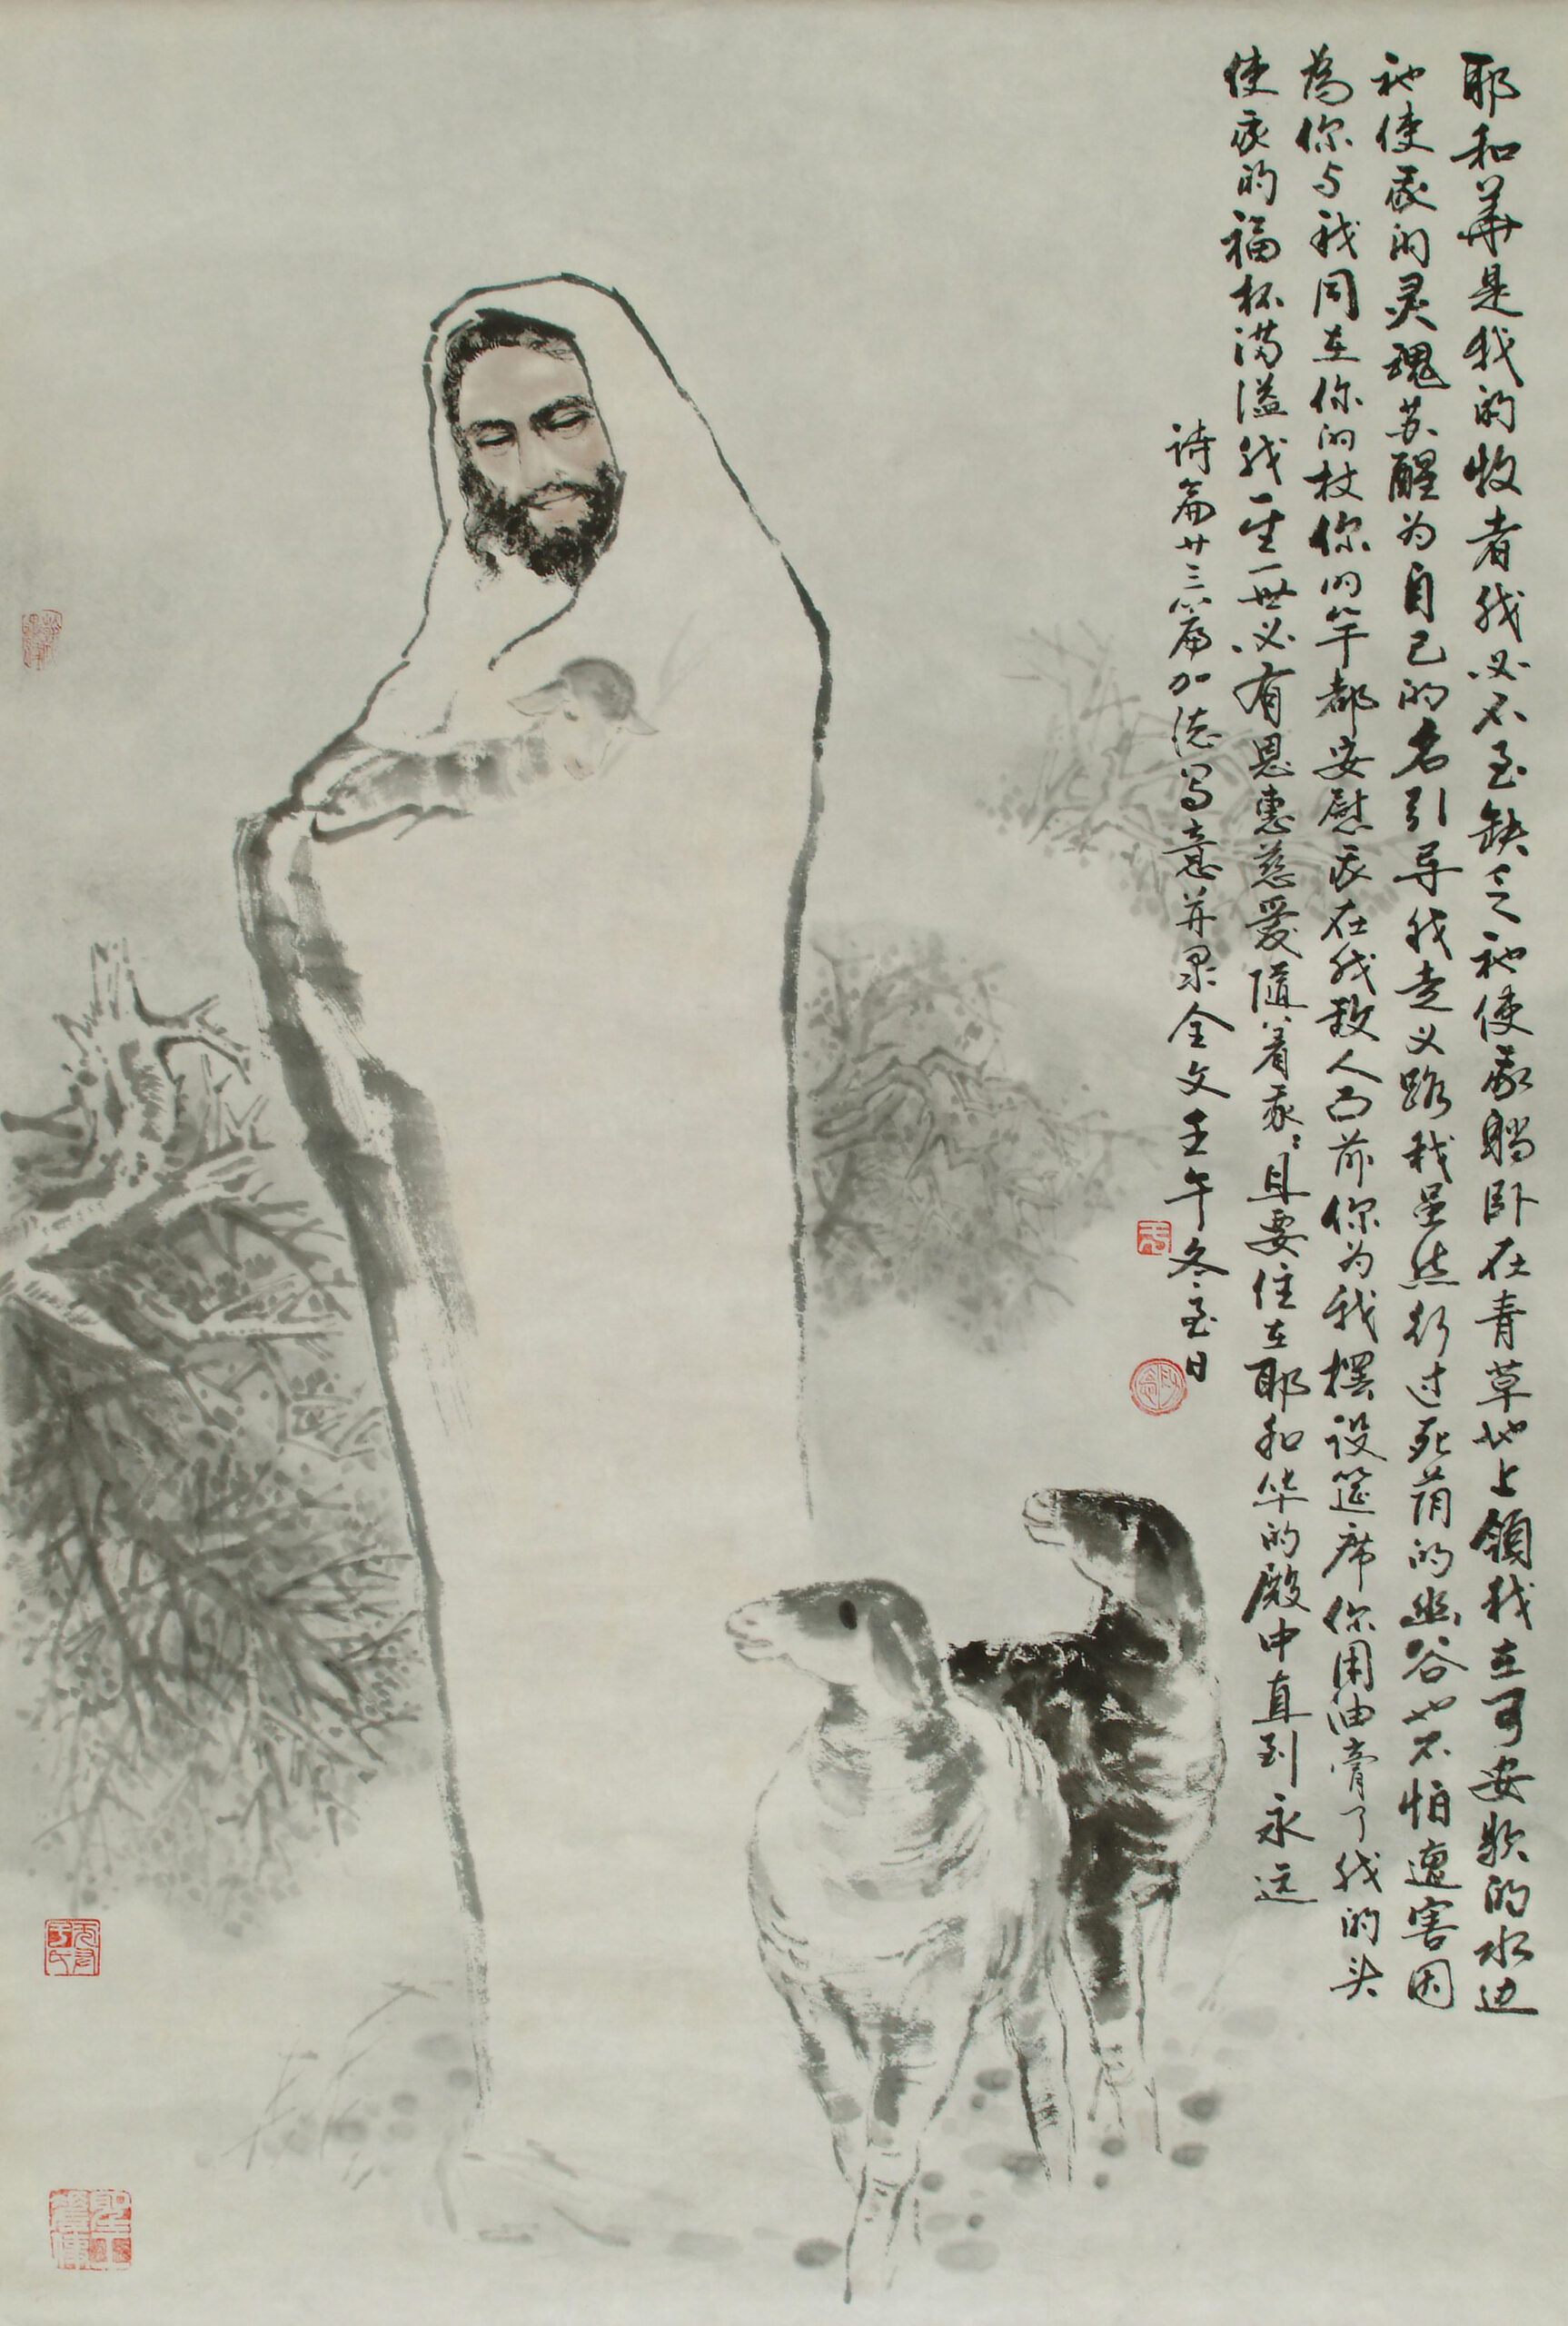 耶和華是我的牧者我必不至缺乏祂使我躺卧在青草地上領我在可安歇的水边
祂使我的灵魂苏醒为自己的名引导我走义路我虽然行过死荫的幽谷也不怕遭害因
為你与我同在你的杖你的竿都安慰我在我敌人面前你为我摆设筵席你用油膏了我的头
使我的福杯满溢我一生一世必有恩惠慈爱隨着我〻且要住在耶和华的殿中直到永远
诗篇廿三篇加德写意并录全文壬午冬至日